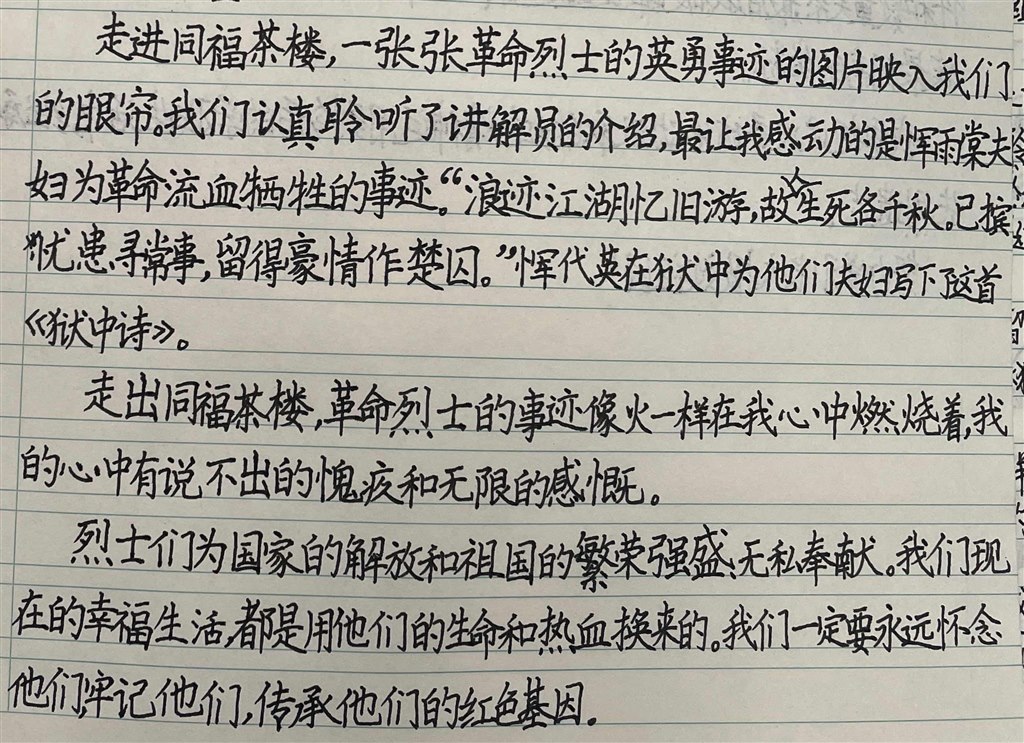 走进同福茶楼，一张张革命烈士的英勇事迹的图片映入我们
的眼帘。我们认真聆听了讲解员的介绍，最让我感动的是恽雨棠夫
妇为革命流血牺牲的事迹。“浪迹江湖忆旧游，故人生死各千秋。已摈
忧患寻常事，留得豪情作楚囚。”恽代英在狱中为他们夫妇写下了这首
《狱中诗》。
走出同福茶楼，革命烈士的事迹像火一样在我心中燃烧着，我
的心中有说不出的愧疚和无限的感慨。
烈士们为国家的解放和祖国的繁荣强盛，无私奉献。我们现
在的幸福生活，都是用他们的生命和热血换来的。我们一定要永远怀念
他们，牢记他们，传承他们的红色基因。